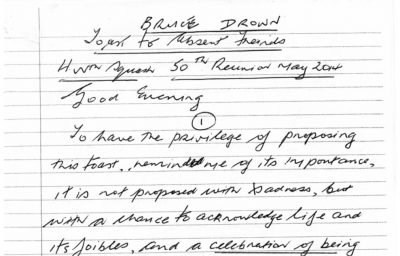 BRUCE DROWN
Toast to Absent Friends
50th Reunion May 2014
Good Evening
1
To have the privilege of proposing
this toast, reminds me of its importance,
it is not proposed with sadness, but
with a chance to acknowledge life and
its foibles, and a celebration of being